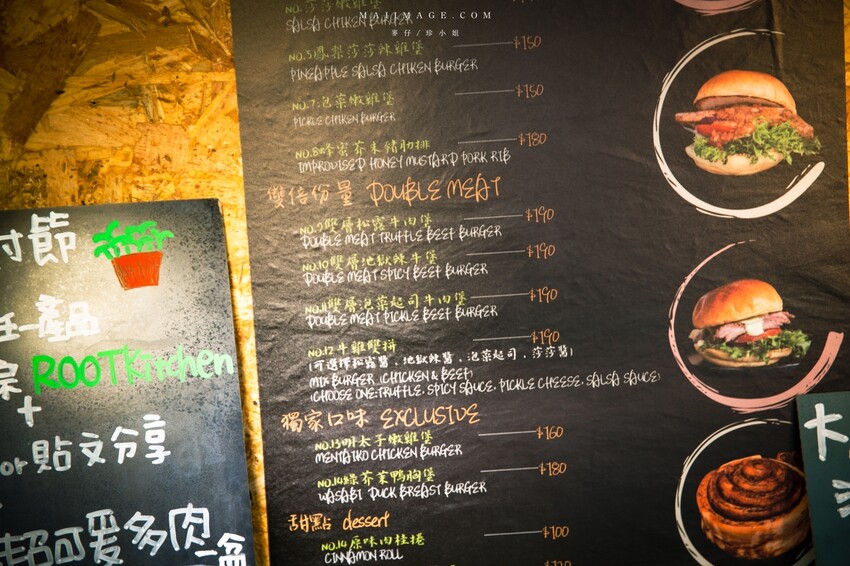 MAIIMAGE.COM
麥仔/珍小姐
莎莎嫩雞堡
SALSA CHIKEN BURGER
$150
NO.5鳳梨莎莎辣雞堡
PINEAPPLE SALSA CHIKEN BURGER
$150
NO.7泡菜嫩雞堡
PICKLE CHIKEN BURGER
$180
NO.8蜂蜜芥末豬肋排
IMPROVISED HONEY MUSTARD PORK RIB
雙倍份量 DOUBLE MEAT
$190
NO.9雙層松露牛肉堡
DOUBLE MEAT TRUFFLE BEEF BURGER
$190
NO.10雙層地獄辣牛堡
DOUBLE MEAT SPICY BEEF BURGER
$190
NO.11雙層泡菜起司牛肉堡
DOUBLE MEAT PICKLE BEEF BURGER
$190
NO.12牛雞雙拼
(可選擇松露醬，地獄辣醬，泡菜起司，莎莎醬)
MIX BURGER (CHICKEN & BEEF)
(CHOOSE ONE:TRUFFLE, SPICY SAUCE, PICKLE CHEESE, SALSA SAUCE)
獨家口味 EXCLUSIVE
$160
NO.13明太子嫩雞堡
MENTAIKO CHICKEN BURGER
$180
NO.14綠芥茉鴨胸堡
WASABI DUCK BREAST BURGER
甜點 dessert
$100
NO.14原味肉桂捲
CINNAMON ROLL
時節
任一產品
ROOTKitchen
+
or貼文分享
超可愛多肉一盆
大